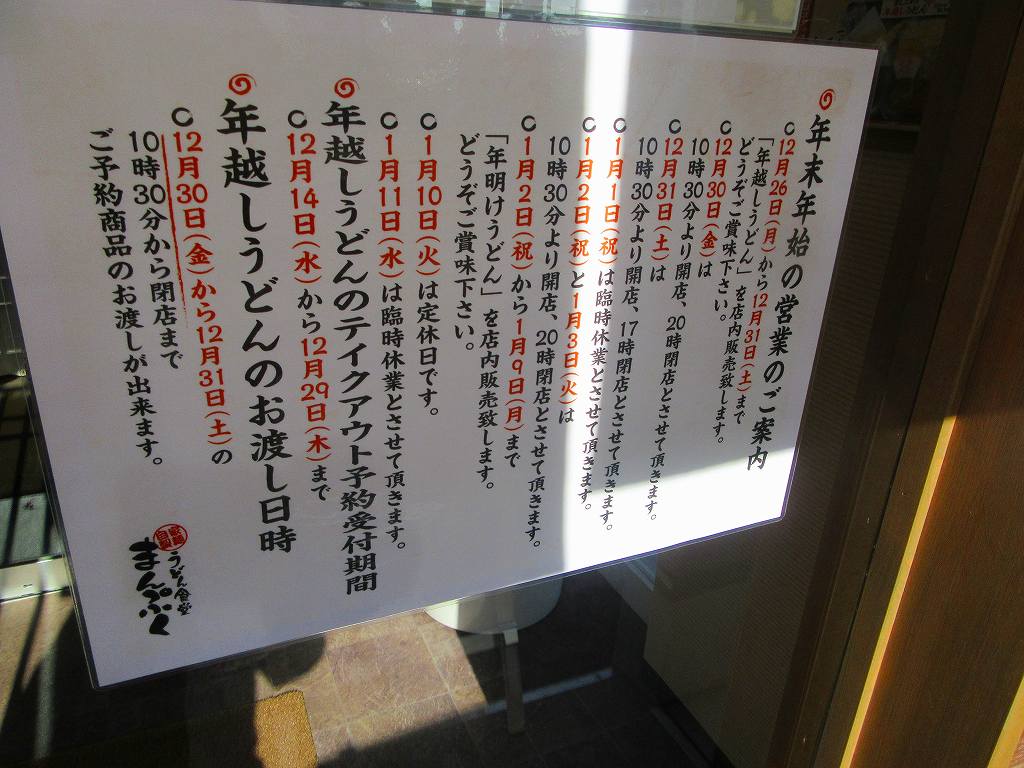 年末年始の営業のご案内
12月26日(月)から12月31日(土)まで
「年越しうどん」を店内販売致します。
どうぞご賞味下さい。
12月30日(金)は
10時30分より開店、20時閉店とさせて頂きます。
12月31日(土)は
10時30分より開店、17時閉店とさせて頂きます。
1月1日(祝)は臨時休業とさせて頂きます。
1月2日(祝)と1月3日(火)は
10時30分より開店、20時閉店とさせて頂きます。
1月2日(祝)から1月9日(月)まで
「年明けうどん」を店内販売致します。
どうぞご賞味下さい。
1月10日(火)は定休日です。
1月11日(水)は臨時休業とさせて頂きます。
年越しうどんのテイクアウト予約受付期間
12月14日(水)から12月29日(木)まで
年越しうどんのお渡し日時
12月30日(金)から12月31日(土)の
10時30分から閉店まで
ご予約商品のお渡しが出来ます。
うどん食堂
まんぷく